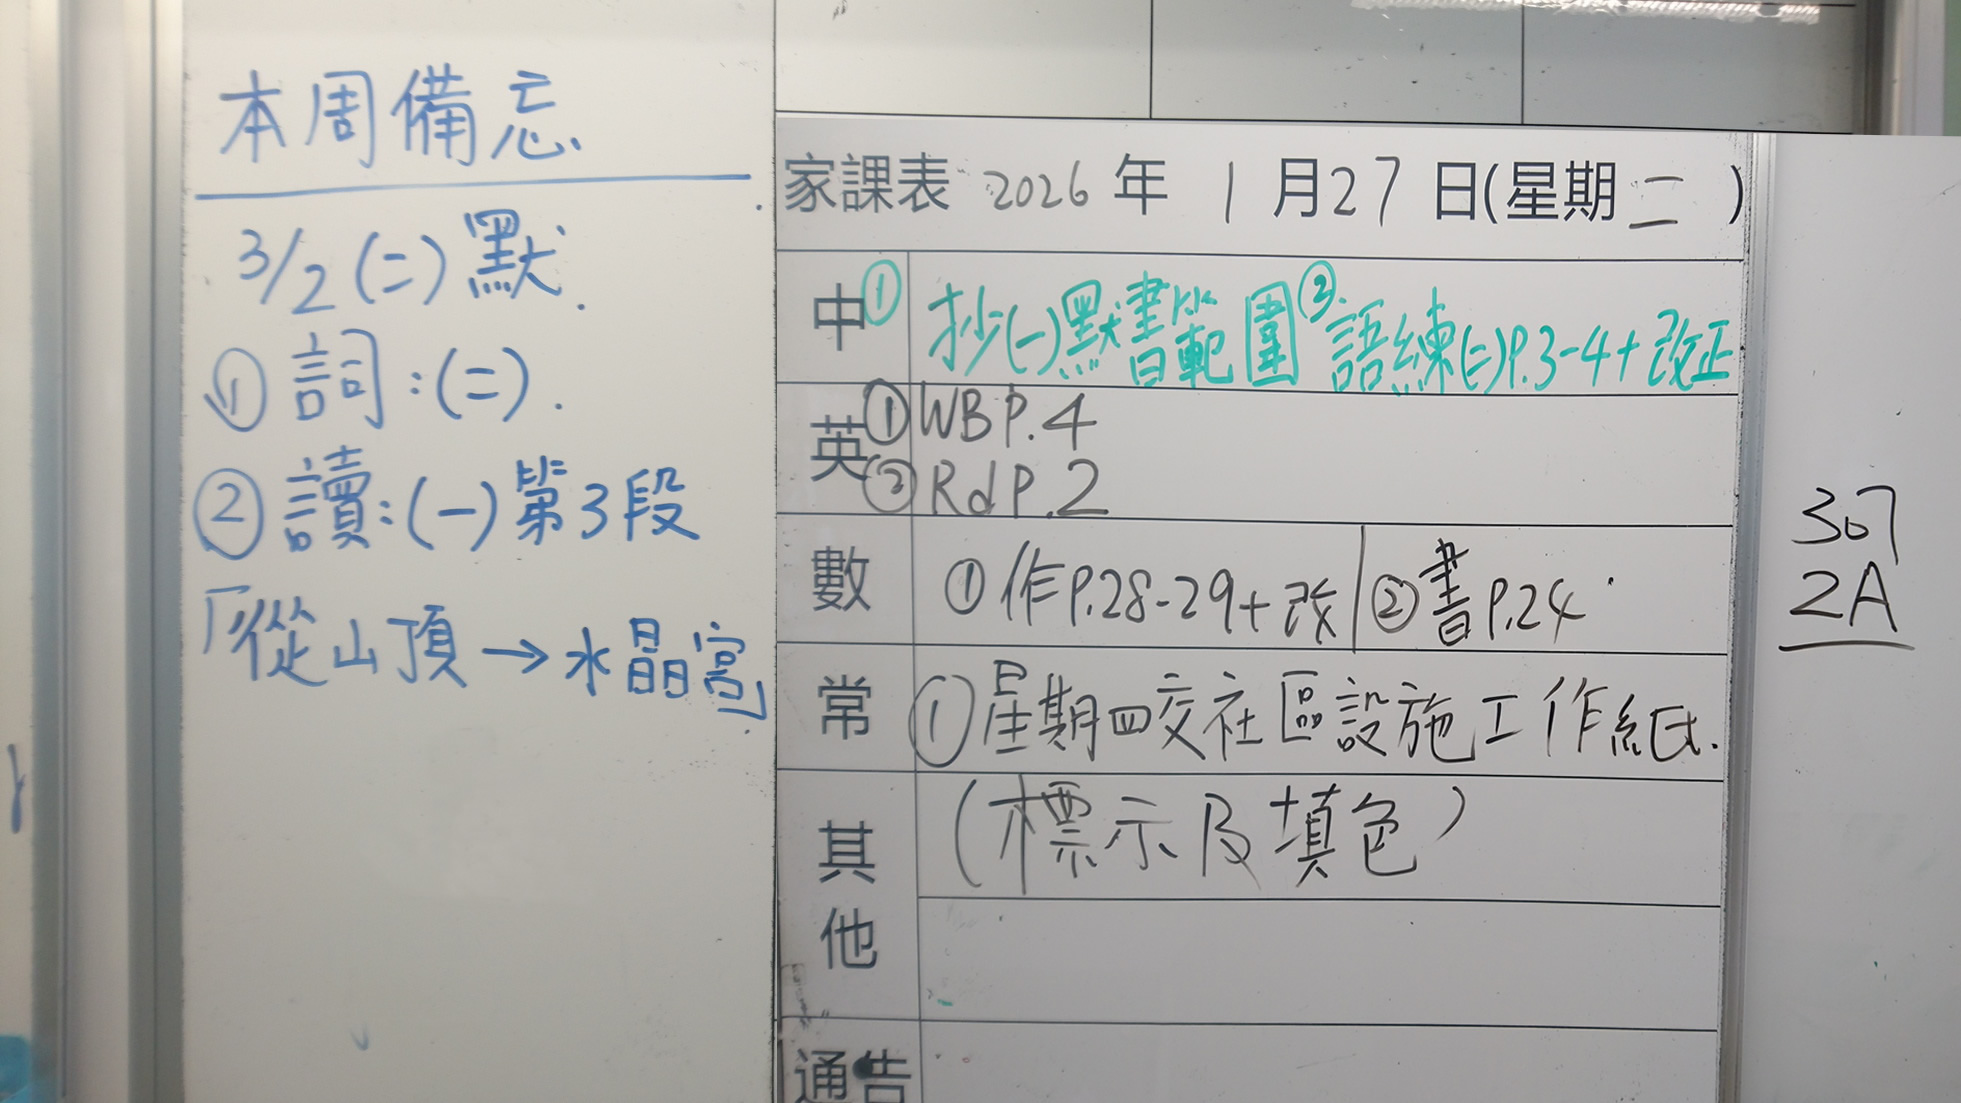 本周備忘.
3/2 (二) 默.
① 詞:(二).
② 讀:(一)第3段
「從山頂→水晶宮」.
家課表 2026 年 1 月 27 日(星期 二 )
中 ① 抄(一)默書範圍 ② 語練(二)P.3-4+改正
英 ① WB P.4
② Rd P.2
數 ① 作P.28-29+改 | ② 書P.24
常 ① 星期四交社區設施工作紙.
其他 (標示及填色)
通告
307
2A